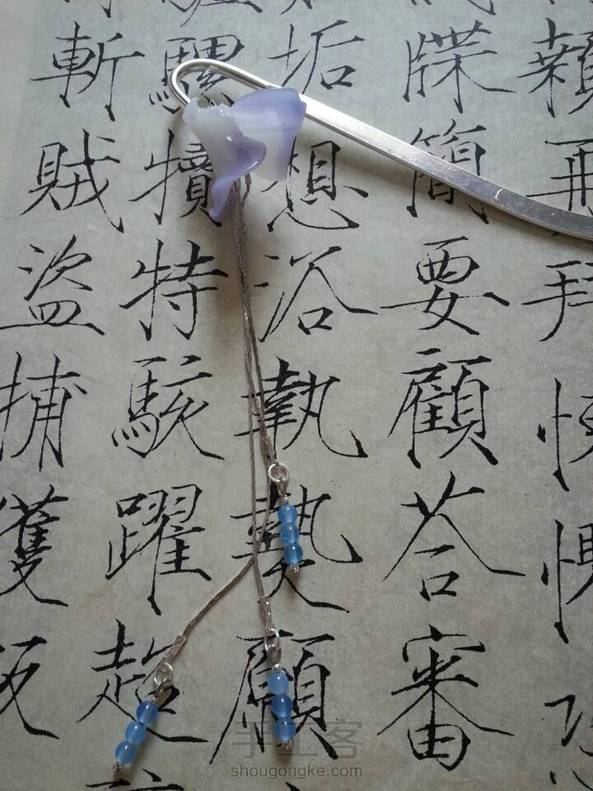 顙再拜悚懼
牒簡要顧荅審
垢想浴執熱願
騾犢特駭躍超
斬賊盜捕獲叛
手工客
shougongke.com